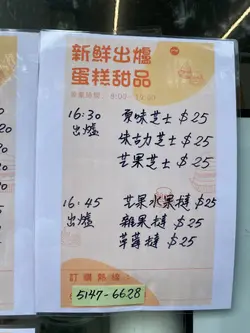 新鮮出爐
蛋糕甜品
16:30 原味芝士 $25
出爐 味古力芝士 $25
芒果芝士 $25
16:45 芒果水果撻 $25
出爐 雜果撻 $25
草莓撻 $25
訂購熱線
5147-6628